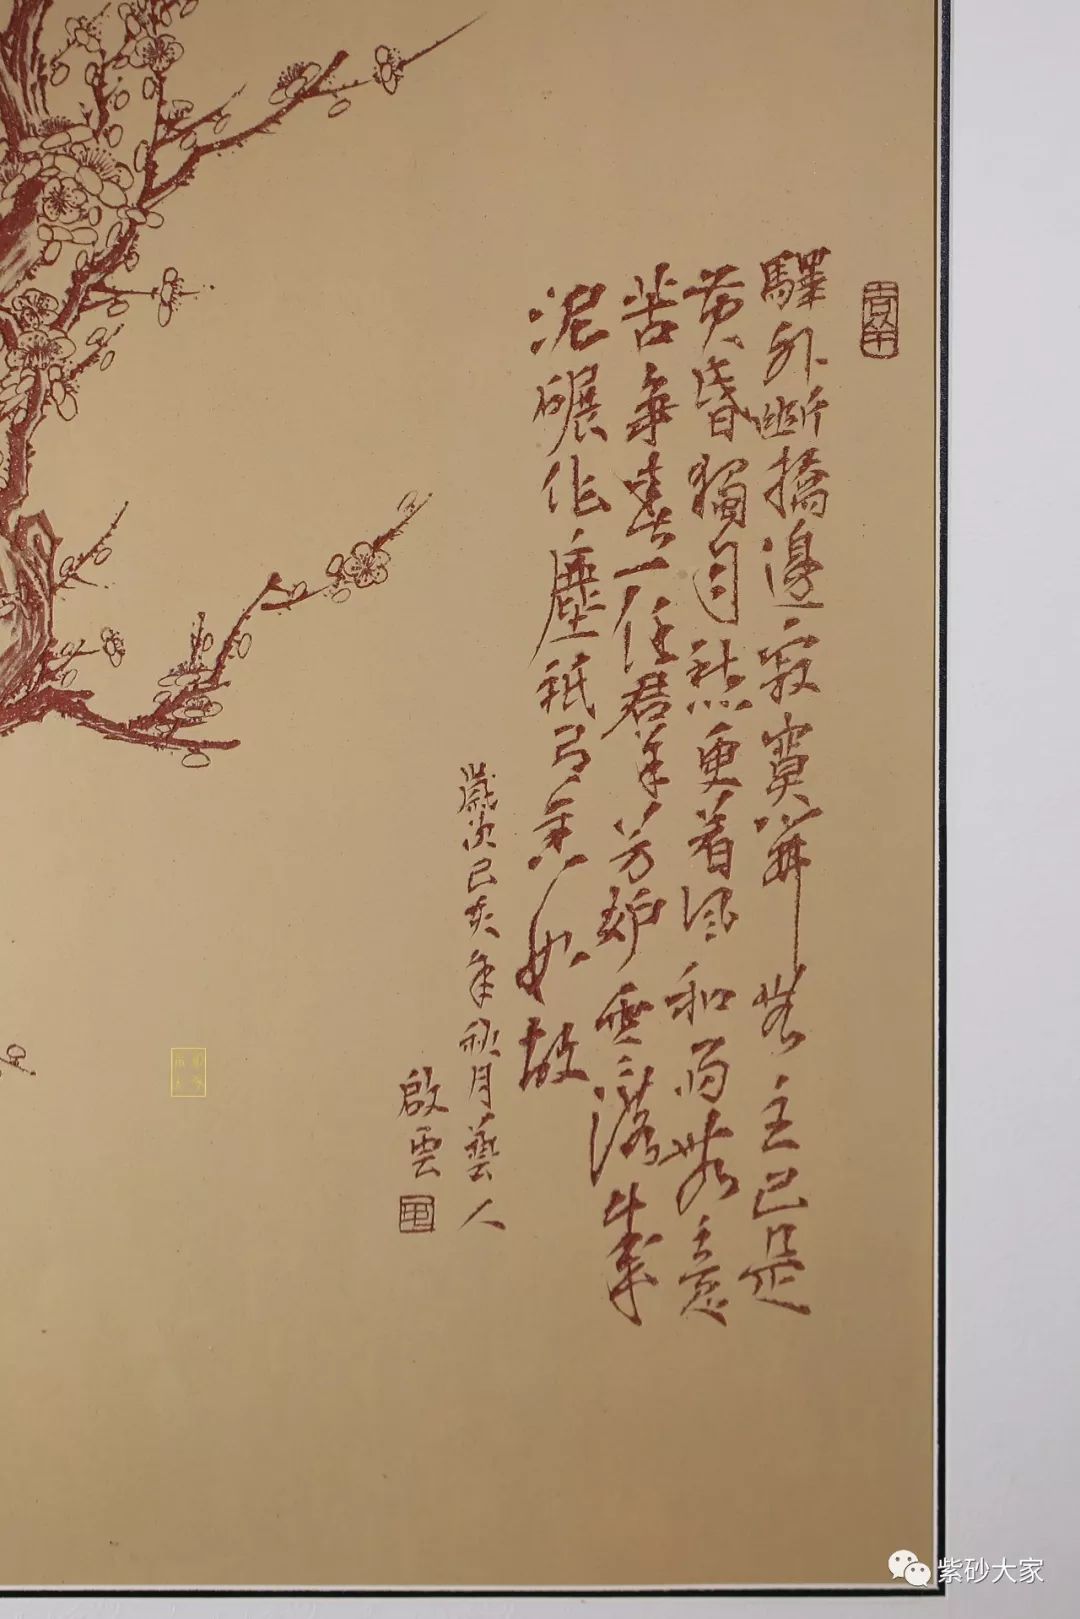 驛外斷橋邊寂寞開無主已是
黄昏獨自愁更着風和雨無意
苦爭春一任群芳妒零落成
泥碾作塵祇有香如故
歲次己亥年秋月藝人
啟雲
紫砂大家